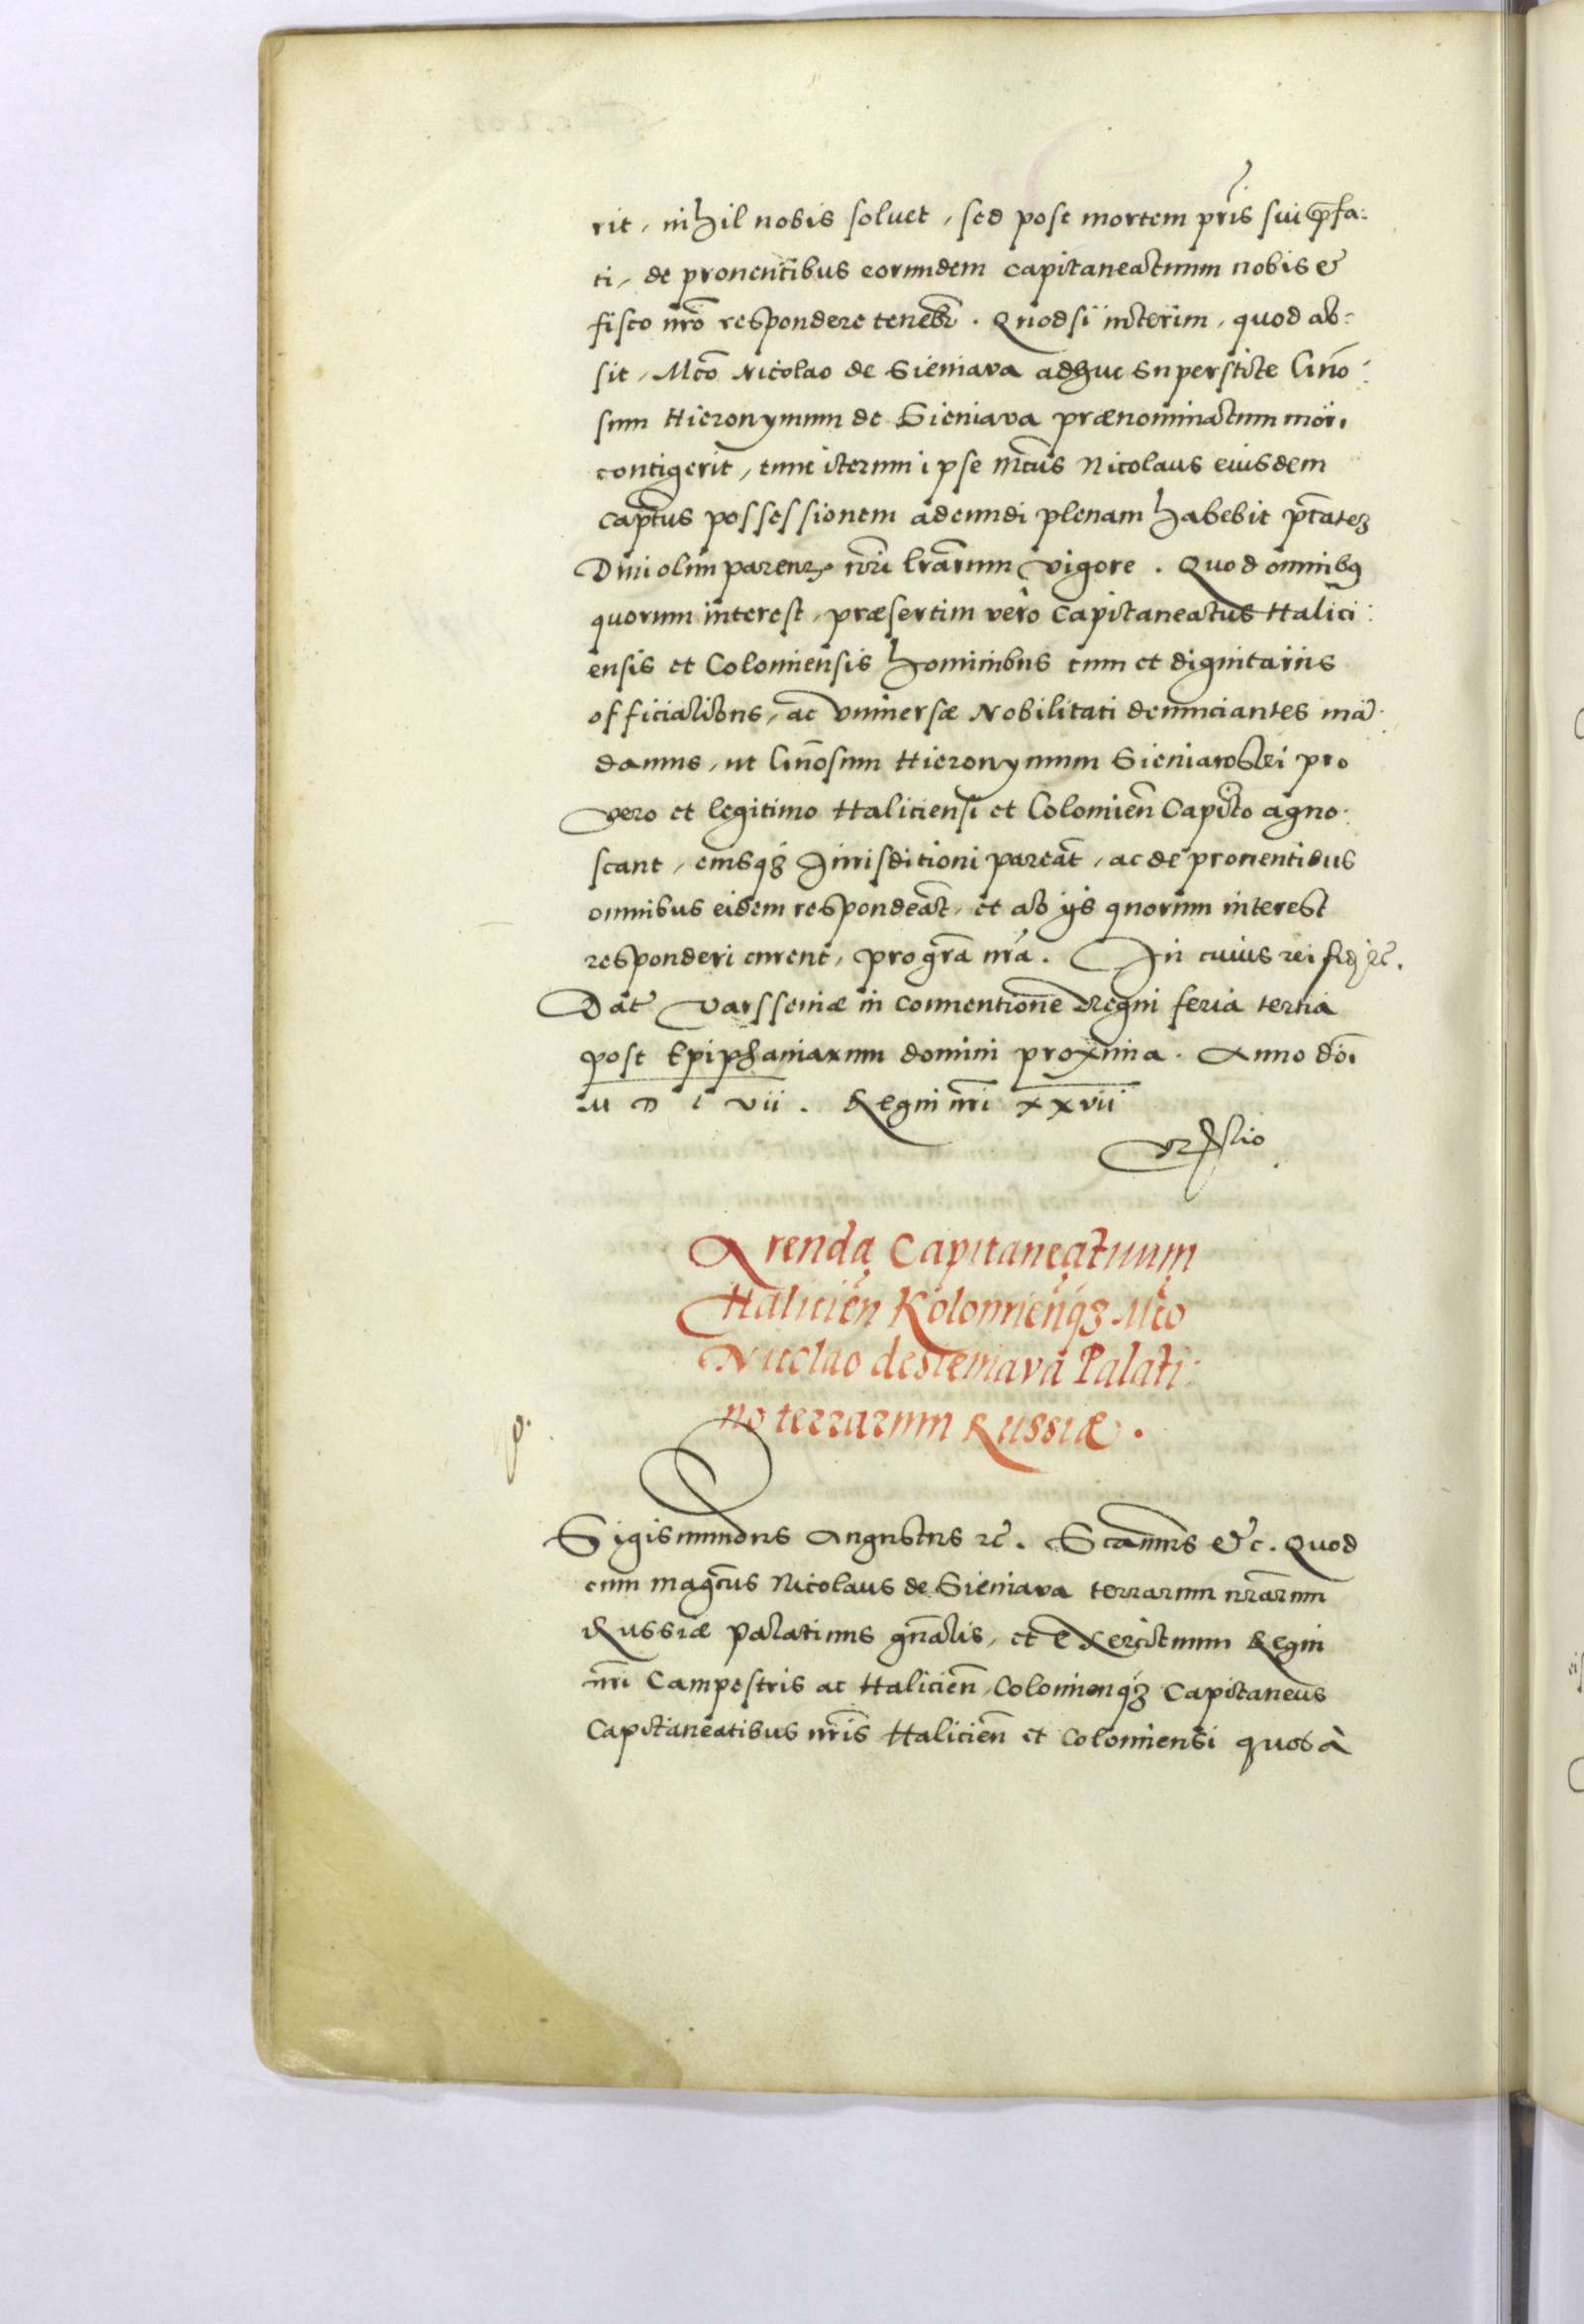 rit, nihil nobis soluet, sed post mortem pris sui p̄fa:
ti, de prouentibus eorundem capitaneatuum nobis &
fisco nr̄o respondere tenebr̄. Quod si interim, quod ab:
sit, Mco Nicolao de Sieniava adhuc superstite Gn̄o:
sum Hieronymum de Sieniava prænominatum mori
contigerit, tunc iterum ipse mcus Nicolaus eiusdem
captus possessionem adeundi plenam habebit ptatez
Diui olim parent nr̄i lrārum vigore. Quod omnibꝫ
quorum interest, præsertim vero Capitaneatus Halici:
ensis et Colomiensis hominibus cum et dignitariis
officialibus, ac vniuersæ Nobilitati denunciantes mā:
damus, ut Gn̄osum Hieronymum Sieniawski pro
vero et legitimo Haliciensi et Colomien̄ Capito agno:
scant, eiusqꝫ Jurisditioni pareāt, ac de prouentibus
omnibus eidem respondeāt, et ab ijs quorum interest
responderi curent, pro grā nr̄a. In cuius rei fidꝫ etc.
Dat Varsseuiæ in conuentione Regni feria tertia
post Epiphaniarum domini proxima. Anno dōi
M D L vii. Regni nr̄i xxvii
Arenda Capitaneatuum
Halicien̄ Kolomienqꝫ Mco
Nicolao de Sieniava Palati:
no terrarum Russiæ.
Sigismundus Augustus etc. Scamus &c. Quod
cum magcus Nicolaus de Sieniava terrarum nrārum
Russiæ Palatinus gnālis, et exercituum Regni
nr̄i Campestris ac Halicien̄, Colomienqꝫ Capitaneus
Capitaneatibus nr̄is Halicien̄ et Colomiensi quos à